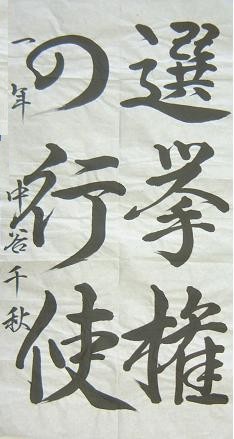 選挙権
の行使
一年 中谷千秋